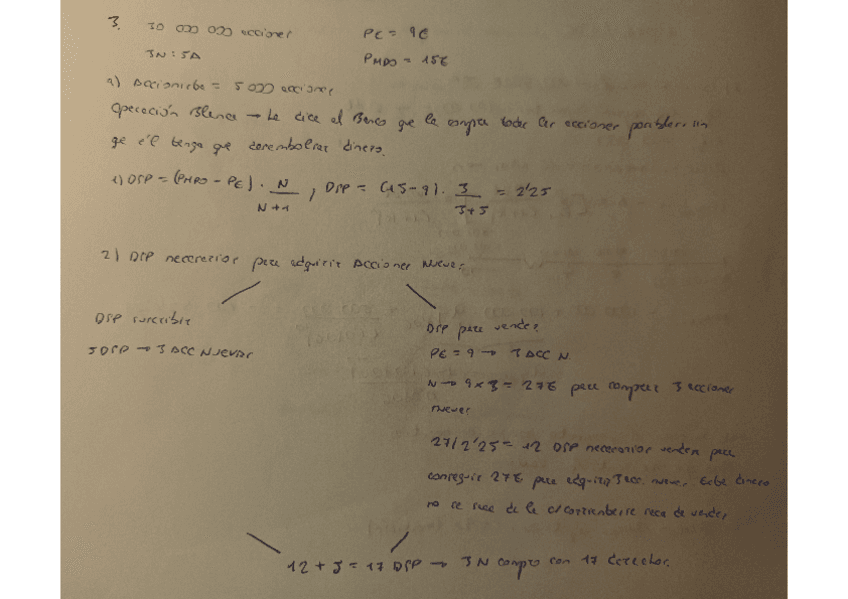 3. 10 000 000 acciones PE = 9€
3N : 5A PMDO = 15€
a) Accionista = 5 000 acciones
Operación Blanca → Le dice al Banco que le compre todas las acciones posibles, sin
que él tenga que desembolsar dinero.
1) DSP = (PMDO - PE) · N / N+A , DSP = (15-9) · 3 / 3+5 = 2'25
2) DSP necesarios para adquirir Acciones Nuevas
DSP suscribir
DSP para vender
5 DSP → 3 ACC NUEVAS
PE = 9 → 3 ACC N.
N → 9 x 3 = 27€ para comprar 3 acciones
nuevas
27/2'25 = 12 DSP necesarios vender para
conseguir 27€ para adquirir 3 acc. nuevas. Este dinero
no se saca de la c/corriente se saca de vender
12 + 5 = 17 DSP → 3N compro con 17 derechos.